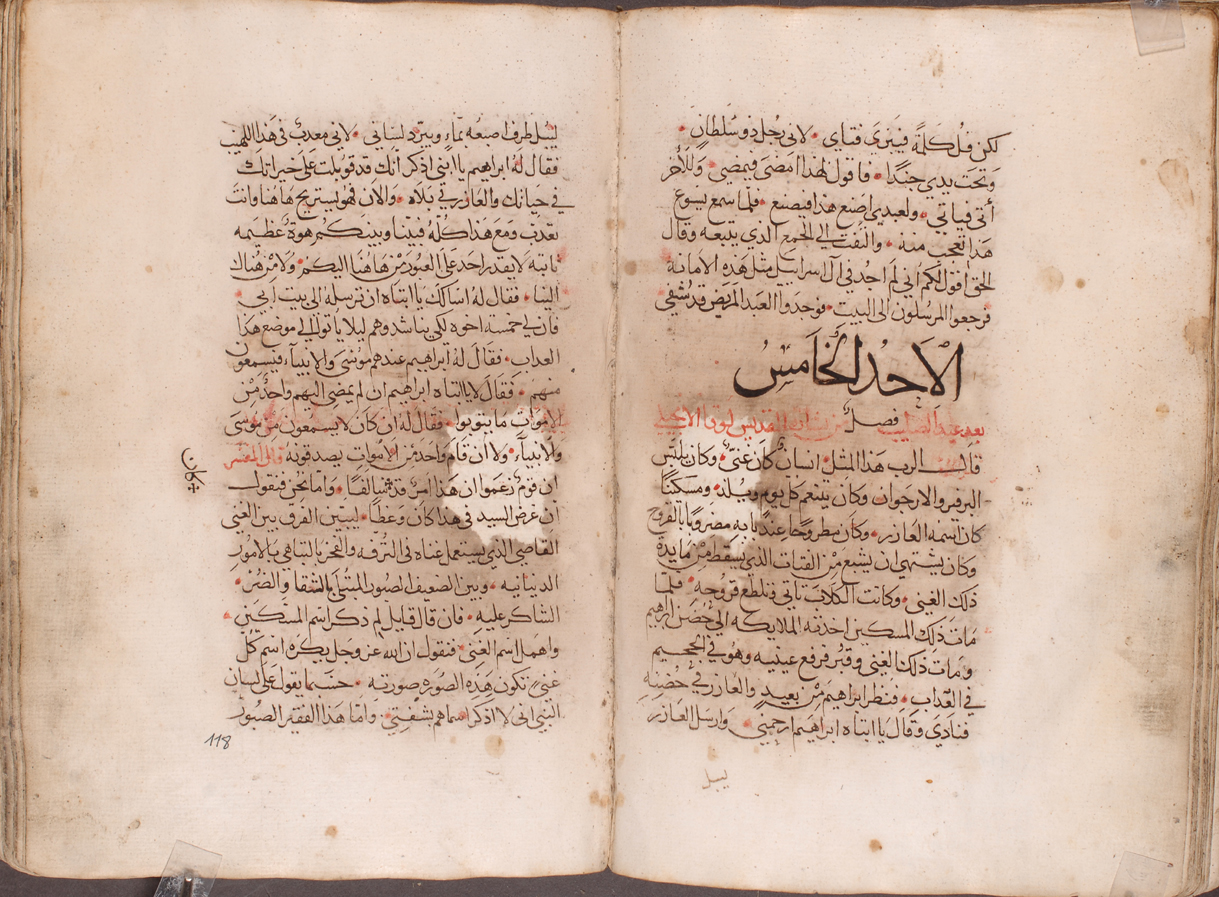 لكن قل كلمة فيبرى فتاي . لاني رجل ذو سلطان .
وتحت يدي جندا . فاقول لهذا امضى فيمضي . وللاخر
أتى فياتي . ولعبدي اصنع هذا فيصنع . فلما سمع يسوع
هذا تعجب منه . والتفت الى الجمع الذي يتبعه وقال
الحق اقول لكم اني لم اجد في آل اسراييل مثل هذه الامانة
فرجعوا المرسلون الى البيت . فوجدوا العبد المريض قد شفي
الاحد الخامس
بعد عيد الصليب فصل من بشارة القديس لوقا الانجيلي
قال الرب هذا المثل . انسان كان غني . وكان يلبس
البرفير والارجوان وكان يتنعم كل يوم ويلذ . ومسكينا
كان اسمه العازر . وكان مطروحا عند بابه مضروبا بالقروح
وكان يشتهي ان يشبع من الفتات الذي يسقط من مايدة
ذلك الغني . وكانت الكلاب تاتي فتلطع قروحه . فلما
مات ذلك المسكين اخذته الملايكه الى حضن ابرهيم
ومات ذلك الغني وقبر فرفع عينيه وهو في الجحيم
في العداب . فنظر ابراهيم من بعيد والعازر في حضنه
فنادى وقال يا ابتاه ابراهيم ارحمني . وارسل العازر
ليبل
ليبل طرف اصبعه بماء ويبرد لساني . لاني معدب في هذا اللهيب
فقال له ابراهيم يا ابني اذكر انك قد قوبلت على خيراتك
في حياتك والعازر في بلاه . والان فهو يستريح هاهنا وانت
تعدب ومع هذا كله فبيننا وبينكم هوة عظيمه
ثابته لا يقدر احد على العبور من هاهنا اليكم . ولا من هناك
الينا . فقال له اسالك يا ابتاه ان ترسله الى بيت ابي .
فان لي خمسة اخوه لكي يناشدوهم ليلا ياتوا الى موضع هذا
العداب . فقال له ابراهيم عندهم موسى والانبياء فيسمعون
منهم . فقال لا يا ابتاه ابراهيم ان لم يمضى اليهم واحد من
الاموات ما يتوبوا . فقال له ان كان لا يسمعون من موسى
والانبياء . ولا ان قام واحد من الاموات يصدقونه قال المفسر
كان
ان قوم زعموا ان هذا امر قد تم سالفا . واما نحن فنقول
ان غرض السيد في هذا كان وعظا . ليبين الفرق بين الغني
القاصي الذي يستعمل غناه في الترفه والفخر بالتناهي بالامور
الدنيانيه . وبين الضعيف الصبور المتبلى بالشقا والضر .
الشاكر عليه . فان قال قايل لم ذكر اسم المسكين .
واهمل اسم الغني . فنقول ان الله عز وجل يكره اسم كل
غني تكون هذه الصوره صورته . حسبما يقول على لسان
النبي اني لا اذكر اسماهم بشفتي . واما هذا الفقير الصبور
118